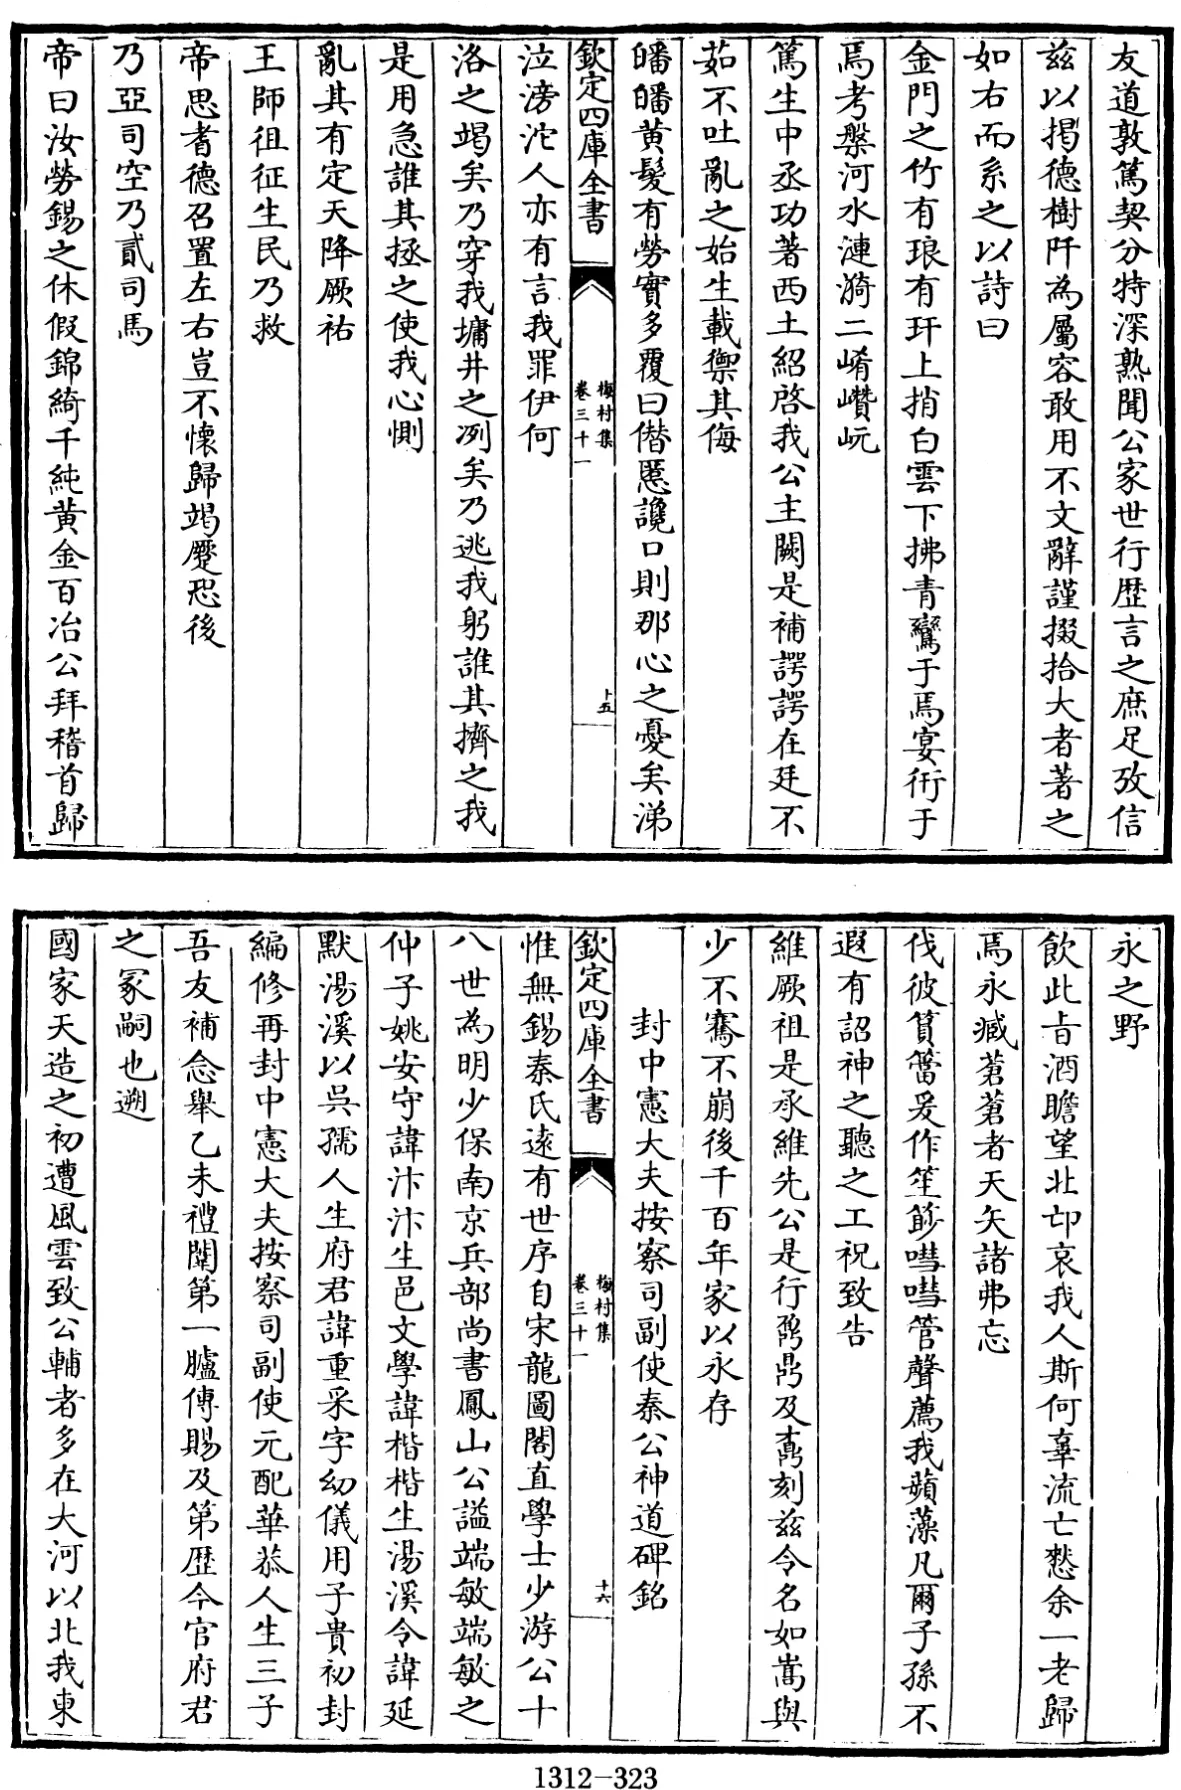 友道敦篤契分特深熟聞公家世行歴言之庶足攷信
兹以掲德樹阡為屬容敢用不文辭謹掇拾大者著之
如右而系之以詩曰
金門之竹有琅有玕上捎白雲下拂青鸞于焉宴衎于
焉考槃河水漣漪二崤巑岏
篤生中丞功著西土紹啓我公主闕是補諤諤在廷不
茹不吐亂之始生載禦其侮
皤皤黄髮有勞實多覆曰僭慝讒口則那心之憂矣涕
欽定四庫全書
梅村集
卷三十一
十五
泣滂沱人亦有言我罪伊何
洛之竭矣乃穿我墉井之冽矣乃逃我躬誰其擠之我
是用急誰其拯之使我心惻
亂其有定天降厥祐
王師徂征生民乃救
帝思耆德召置左右豈不懐歸竭蹷恐後
乃亞司空乃貳司馬
帝曰汝勞錫之休假錦綺千純黄金百冶公拜稽首歸
永之野
飲此旨酒瞻望北邙哀我人斯何辜流亡憖余一老歸
焉永臧蒼蒼者天矢諸弗忘
伐彼篔簹爰作笙簜嘒嘒管聲薦我蘋藻凡爾子孫不
遐有詔神之聽之工祝致告
維厥祖是承維先公是行鼐鼎及鬵刻兹令名如嵩與
少不騫不崩後千百年家以永存
封中憲大夫按察司副使秦公神道碑銘
欽定四庫全書
梅村集
卷三十一
十六
惟無錫秦氏逺有世序自宋龍圖閣直學士少游公十
八世為明少保南京兵部尚書鳳山公諡端敏端敏之
仲子姚安守諱汴汴生邑文學諱楷楷生湯溪令諱延
默湯溪以吳孺人生府君諱重采字幼儀用子貴初封
編修再封中憲大夫按察司副使元配華恭人生三子
吾友補念舉乙未禮闈第一臚傳賜及第歴今官府君
之冢嗣也遡
國家天造之初遭風雲致公輔者多在大河以北我東
1312-323